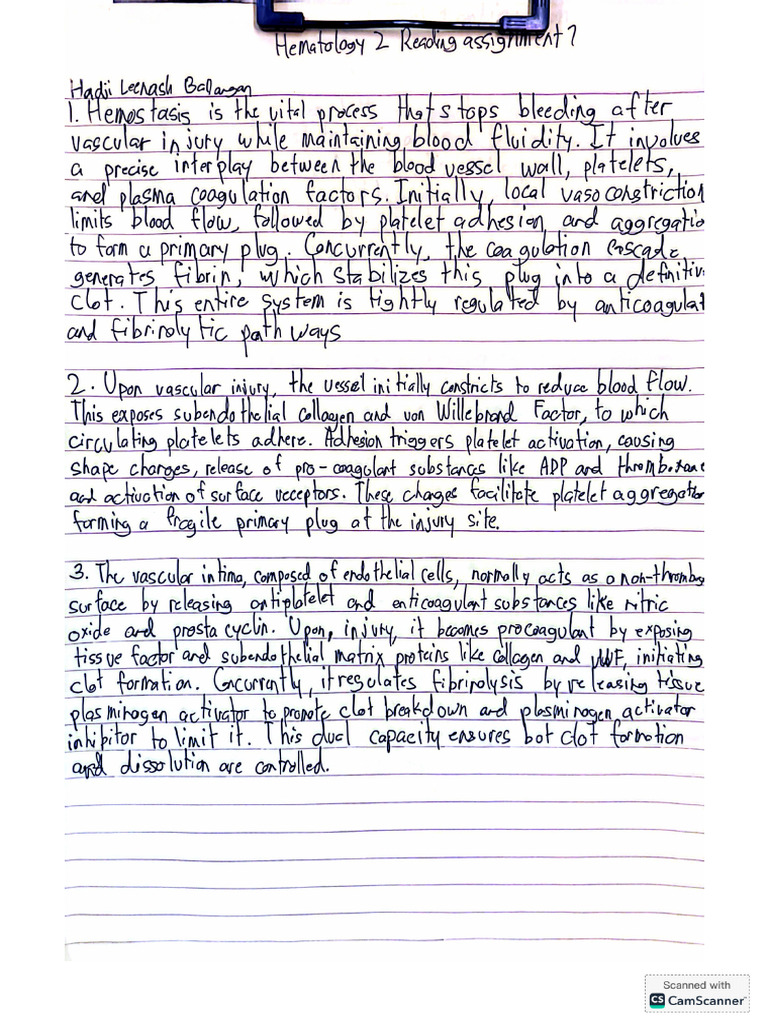 Hematology 2 Reading assignment 1
Hadji Leenash Ballangan
1. Hemostasis is the vital process that stops bleeding after
vascular injury while maintaining blood fluidity. It involves
a precise interplay between the blood vessel wall, platelets,
and plasma coagulation factors. Initially, local vasoconstriction
limits blood flow, followed by platelet adhesion and aggregatio
to form a primary plug. Concurrently, the coagulation cascade
generates fibrin, which stabilizes this plug into a definitiv
clot. This entire system is tightly regulated by anticoagulat
and fibrinolytic pathways
2. Upon vascular injury, the vessel initially constricts to reduce blood flow.
This exposes subendothelial collagen and von Willebrand Factor, to which
circulating platelets adhere. Adhesion triggers platelet activation, causing
shape changes, release of pro-coagulant substances like ADP and thromboxane
and activation of surface receptors. These changes facilitate platelet aggregation
forming a fragile primary plug at the injury site.
3. The vascular intima, composed of endothelial cells, normally acts as a non-thrombog
surface by releasing antiplatelet and anticoagulant substances like nitric
oxide and prostacyclin. Upon, injury, it becomes procoagulant by exposing
tissue factor and subendothelial matrix proteins like collagen and vWF, initiating
clot formation. Concurrently, it regulates fibrinolysis by releasing tissue
plasminogen activator to promote clot breakdown and plasminogen activator
inhibitor to limit it. This dual capacity ensures bot clot formation
and dissolution are controlled.
Scanned with
CS CamScanner